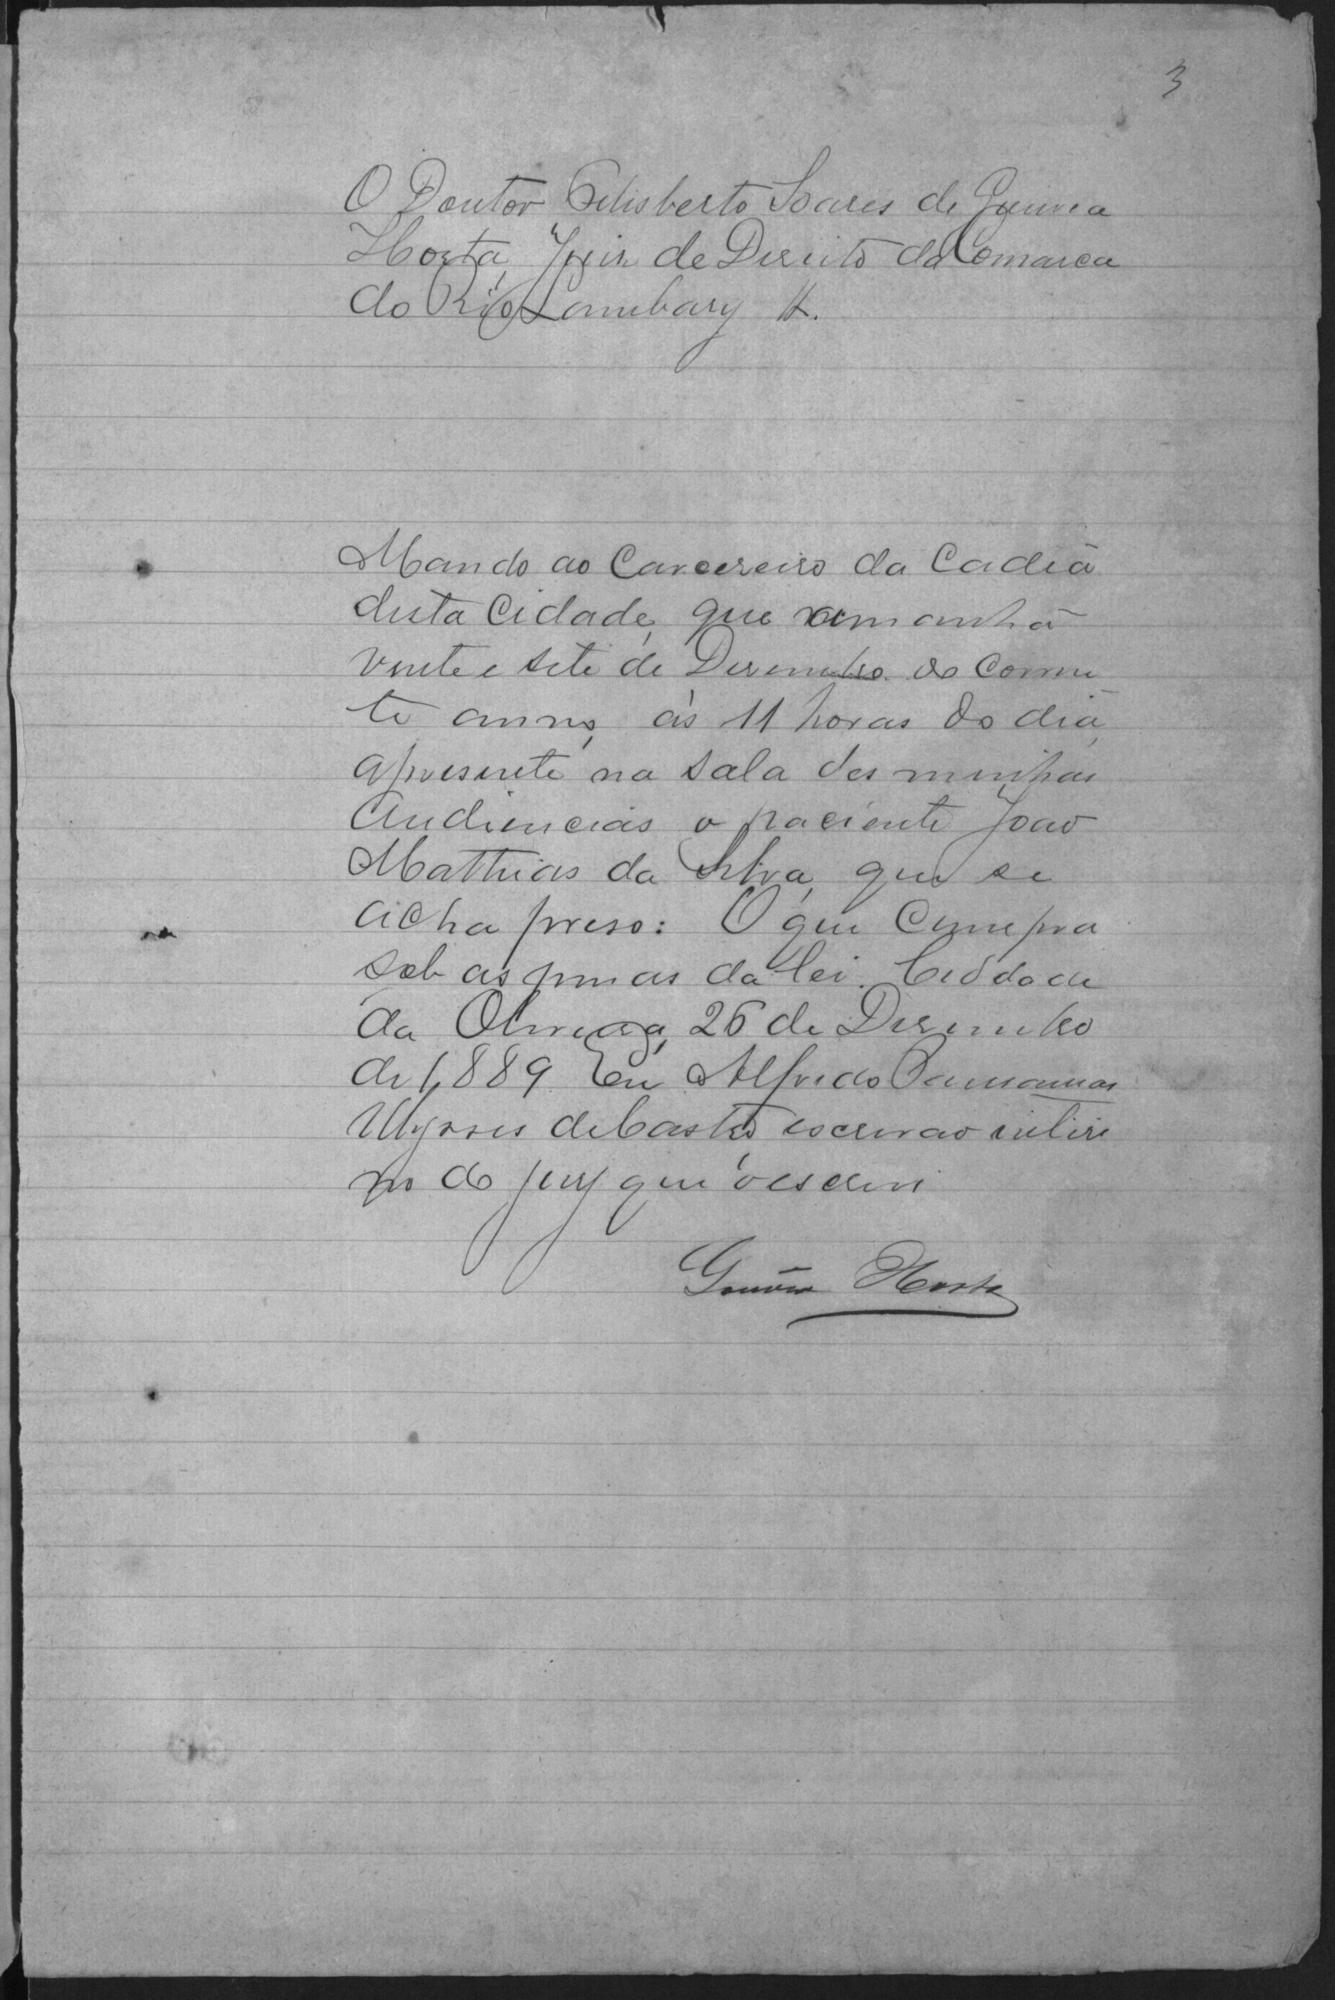 3
O Doutor Felisberto Soares de Gouvea
Horta, Juiz de Direito da Comarca
do Rio Lambary &.
Mando ao Carcereiro da Cadeia
desta Cidade, que amanhã
vinte e sete de Dezembro do corren
te anno, ás 11 horas do dia,
apresente na sala das minhas
audiencias o paciente João
Mathias da Silva, que se
acha preso: O que cumpra
sob as penas da lei. Cidade
da Oliveira, 26 de Dezembro
de 1,889. Eu Alfredo
Ulysses de Castro escrivão interi
no do jury que o escrevi
Gouvêa Horta